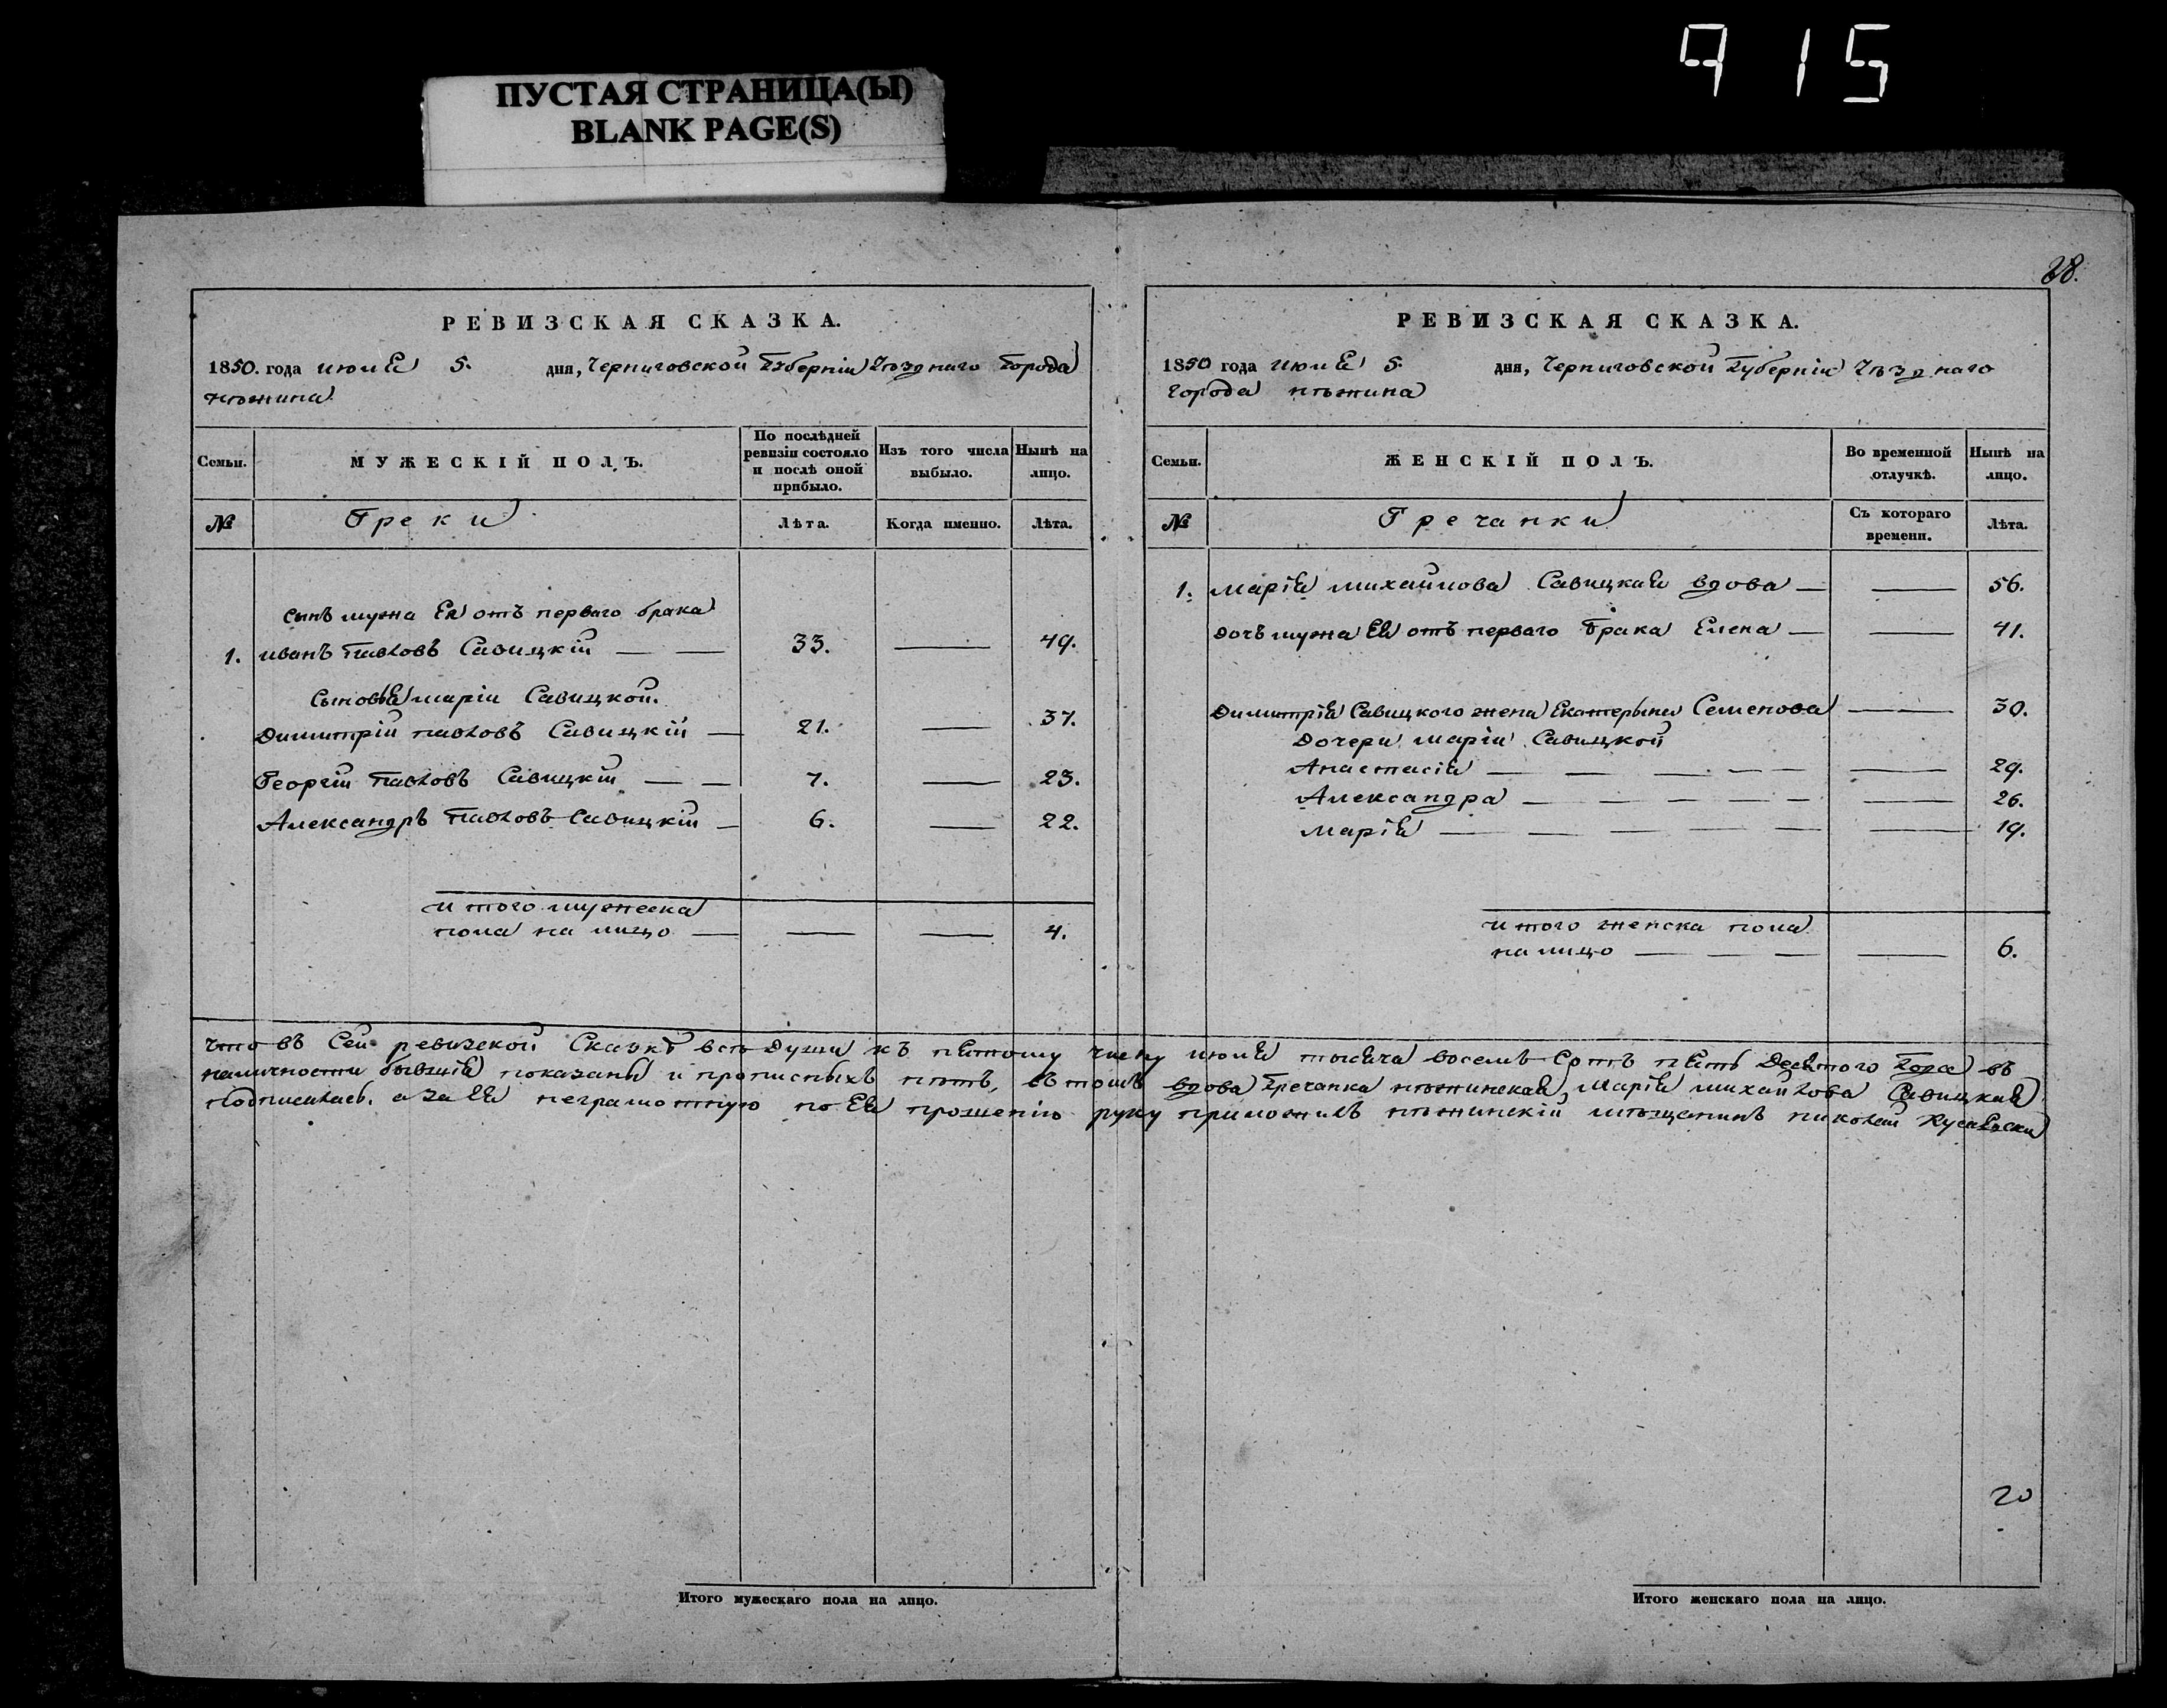 915
ПУСТАЯ СТРАНИЦА(Ы)
BLANK PAGE(S)
28.
РЕВИЗСКАЯ СКАЗКА.
1850. года июля 5. дня, Черниговской Губерніи Уѣзднаго Города
нѣжина
Семьи.
МУЖЕСКІЙ ПОЛЪ.
По послѣдней ревизіи состояло и послѣ оной прибыло.
Изъ того числа выбыло.
Нынѣ на лицо.
№
Греки
Лѣта.
Когда именно.
Лѣта.
Сынъ мужа Ея отъ перваго брака
1. иванъ Павловъ Савицкій — — 33. — 49.
Сыновья маріи Савицкой.
Димитрій павловъ Савицкій — 21. — 37.
Георгій Павловъ Савицкій — — 7. — 23.
Александръ Павловъ Савицкій — 6. — 22.
итого мужеска
пола на лицо — — — 4.
РЕВИЗСКАЯ СКАЗКА.
1850 года июля 5. дня, Черниговской Губерніи Уѣзднаго
Города нѣжина
Семьи.
ЖЕНСКІЙ ПОЛЪ.
Во временной отлучкѣ.
Нынѣ на лицо.
№
Гречанки
Съ котораго времени.
Лѣта.
1. марія михайлова Савицкая вдова — — 56.
дочь мужа Ея отъ перваго брака Елена — — 41.
Димитрія Савицкого жена Екатерына Семенова — 30.
Дочери маріи Савицкой
Анастасія — — — — — — 29.
Александра — — — — — — 26.
марія — — — — — — 19.
итого женска пола
на лицо — — — — 6.
что въ Сей ревизской Сказкѣ всѣ Души къ пятому числу июля тысяча восемъ Сотъ пять Десятого Года въ
наличности бывшія показаны и прописныхъ нѣтъ, въ томъ вдова Гречанка нѣжинская, Марія михайлова Савицкая
Подписалась. а за Ея неграмотную по Ея прошенію руку приложилъ нѣжинскій мѣщанинъ николай
20
Итого мужескаго пола на лицо.
Итого женскаго пола на лицо.